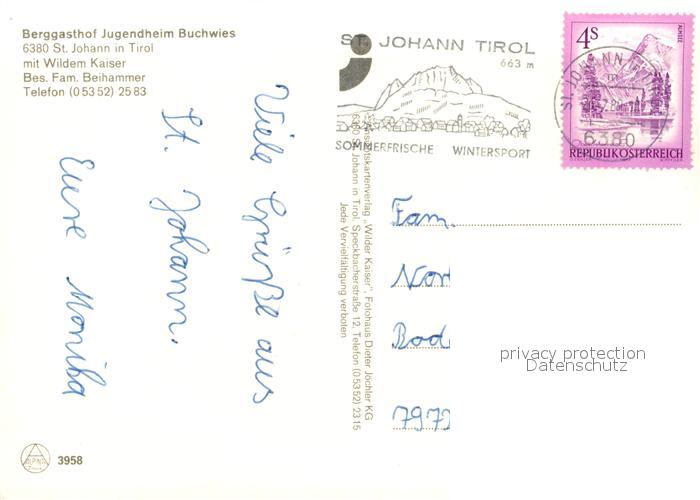 Berggasthof Jugendheim Buchwies
6380 St. Johann in Tirol
mit Wildem Kaiser
Bes. Fam. Beihammer
Telefon (05352) 2583
Viele Grüße aus
St. Johann.
Eure Monika
Ansichtskartenverlag „Wilder Kaiser", Fotohaus Dieter Jöchler KG
6380 St. Johann in Tirol, Speckbacherstraße 12, Telefon (05352) 2315
Jede Vervielfältigung verboten
ST. JOHANN TIROL
663 m
SOMMERFRISCHE WINTERSPORT
4s
ALMSEE
REPUBLIK ÖSTERREICH
ST. JOHANN
6380
Fam.
Nor
Bad
7972
privacy protection
Datenschutz
ALPINA
3958